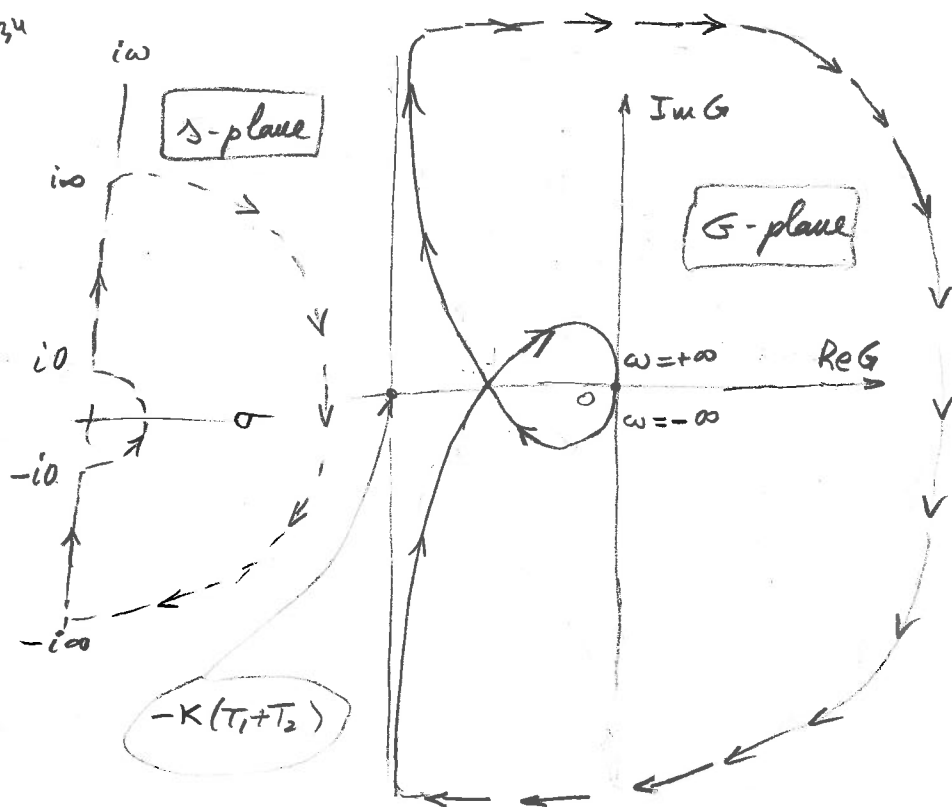 34
iω
s-plane
i∞
i0
σ
-i0
-i∞
-K(T₁+T₂)
Im G
G-plane
ω=+∞
Re G
0
ω=-∞